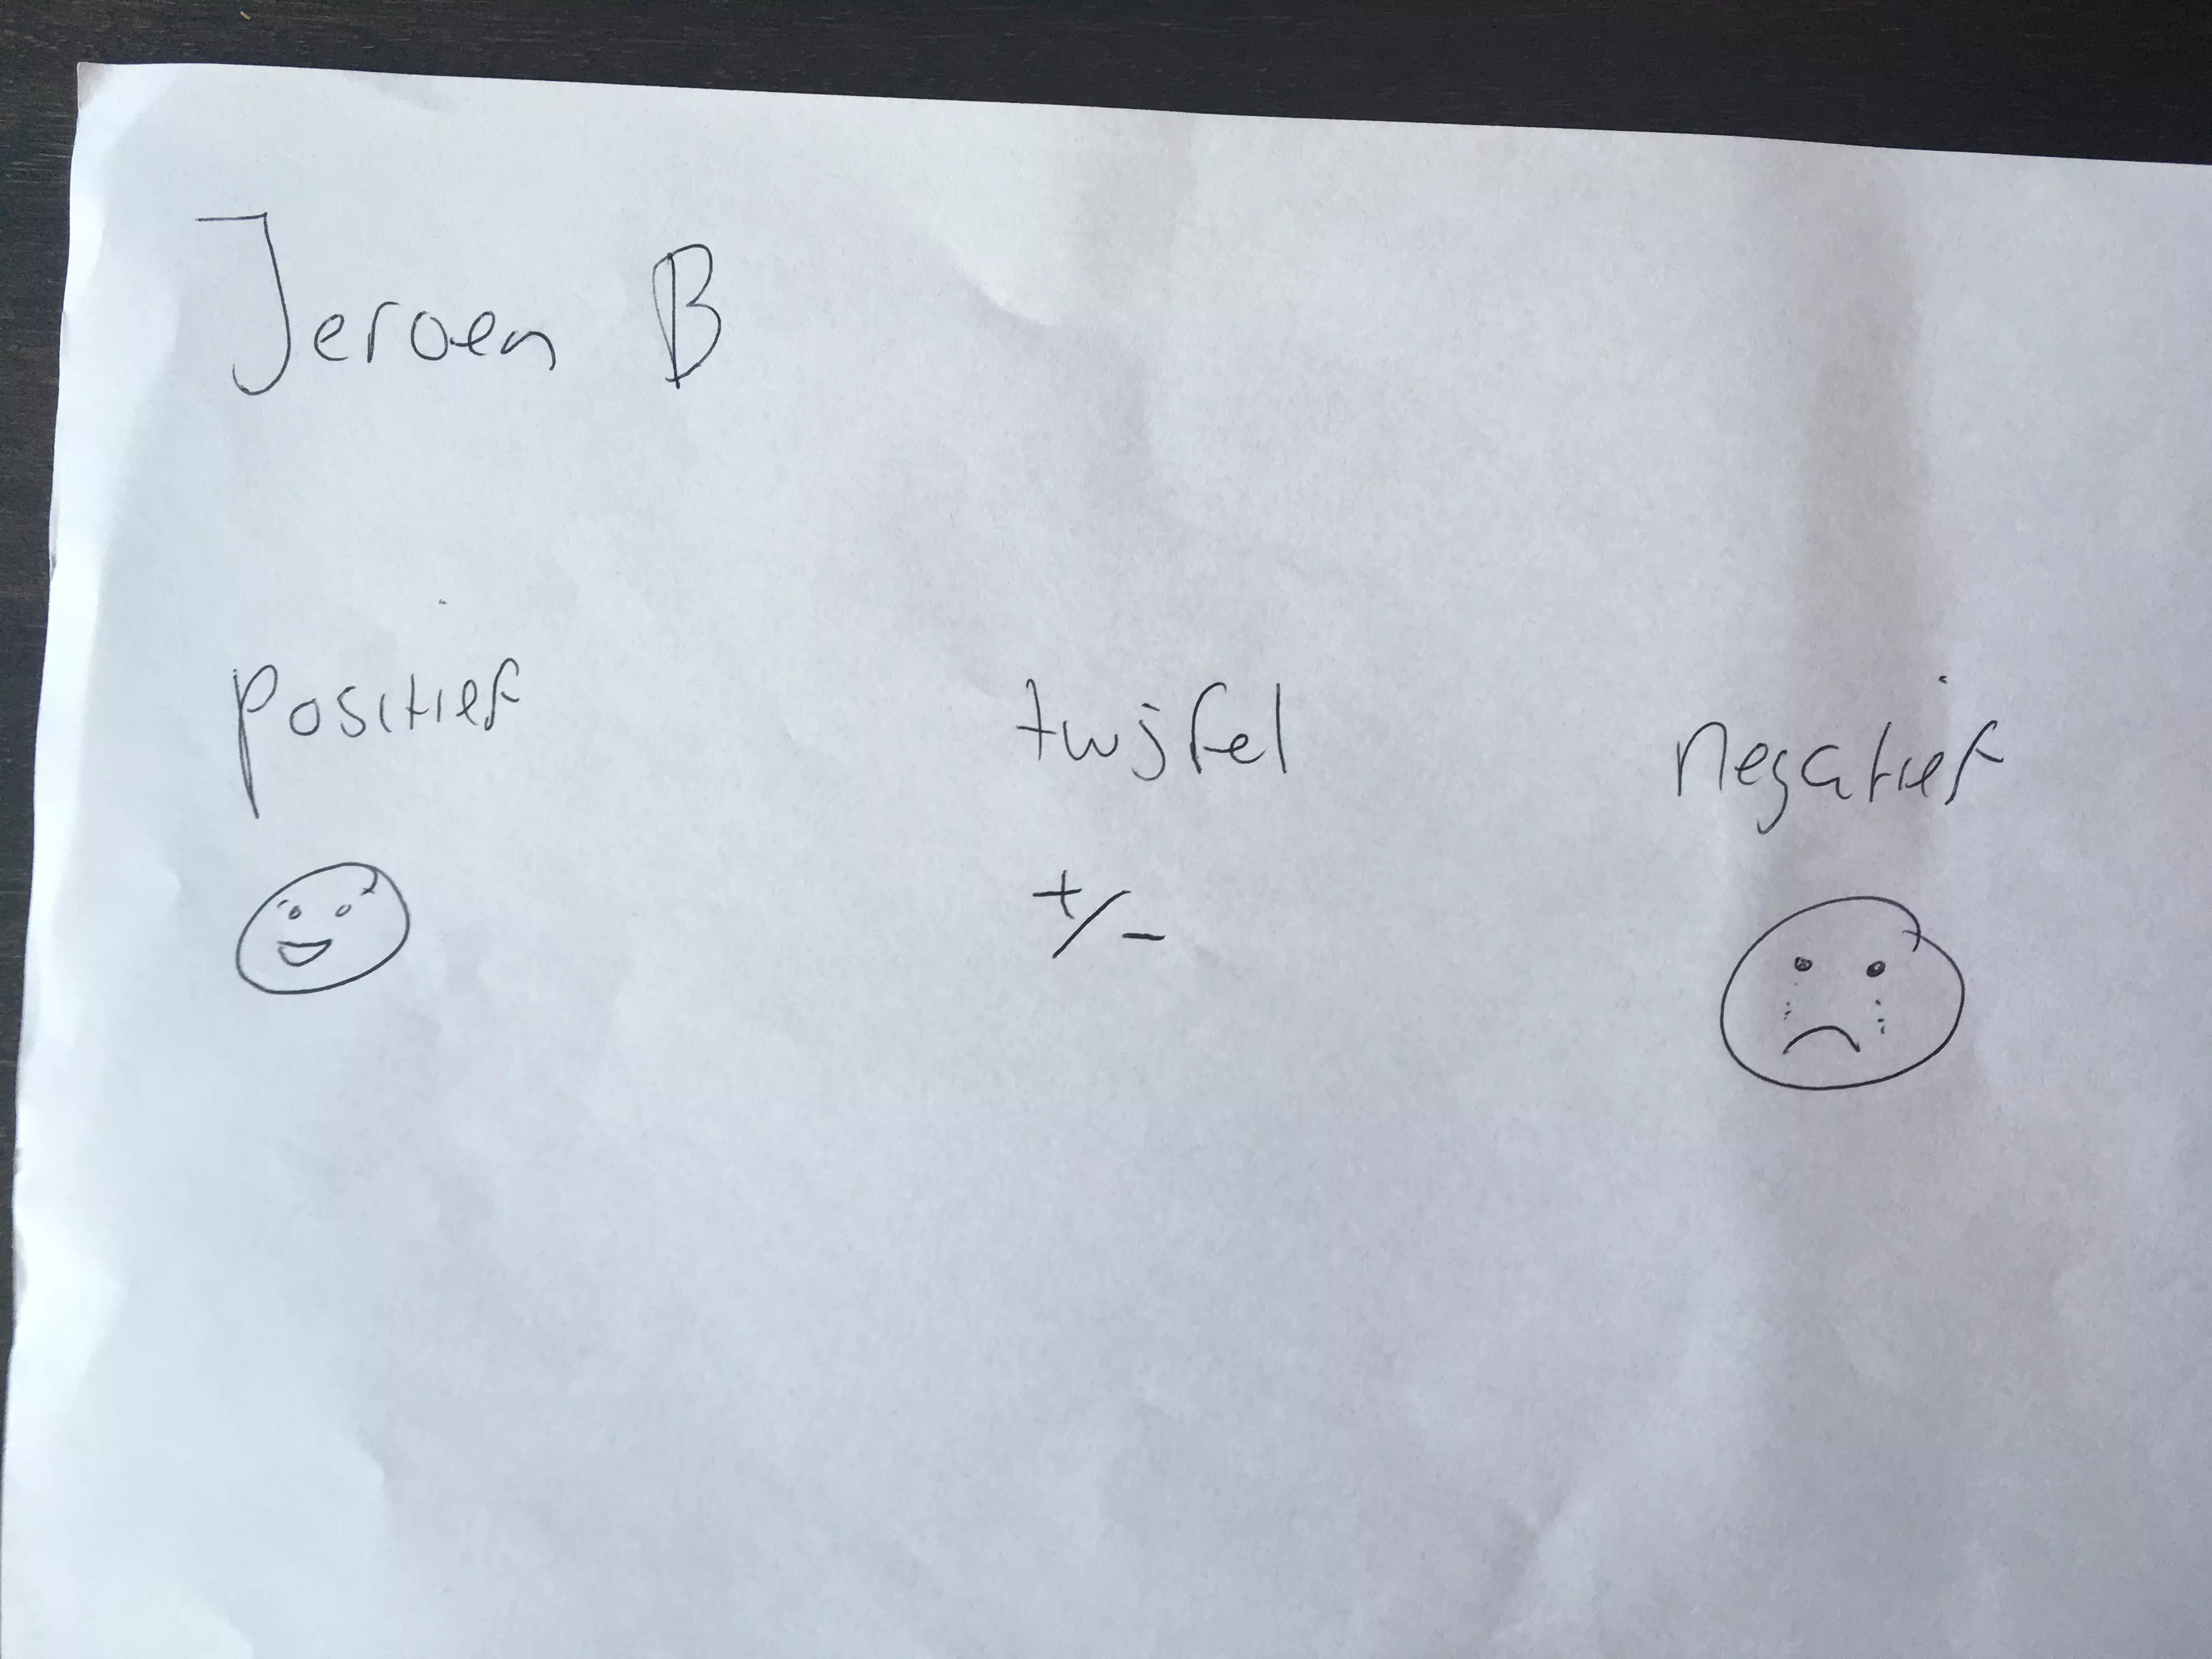 Jeroen B
positief twijfel negatief
+/-